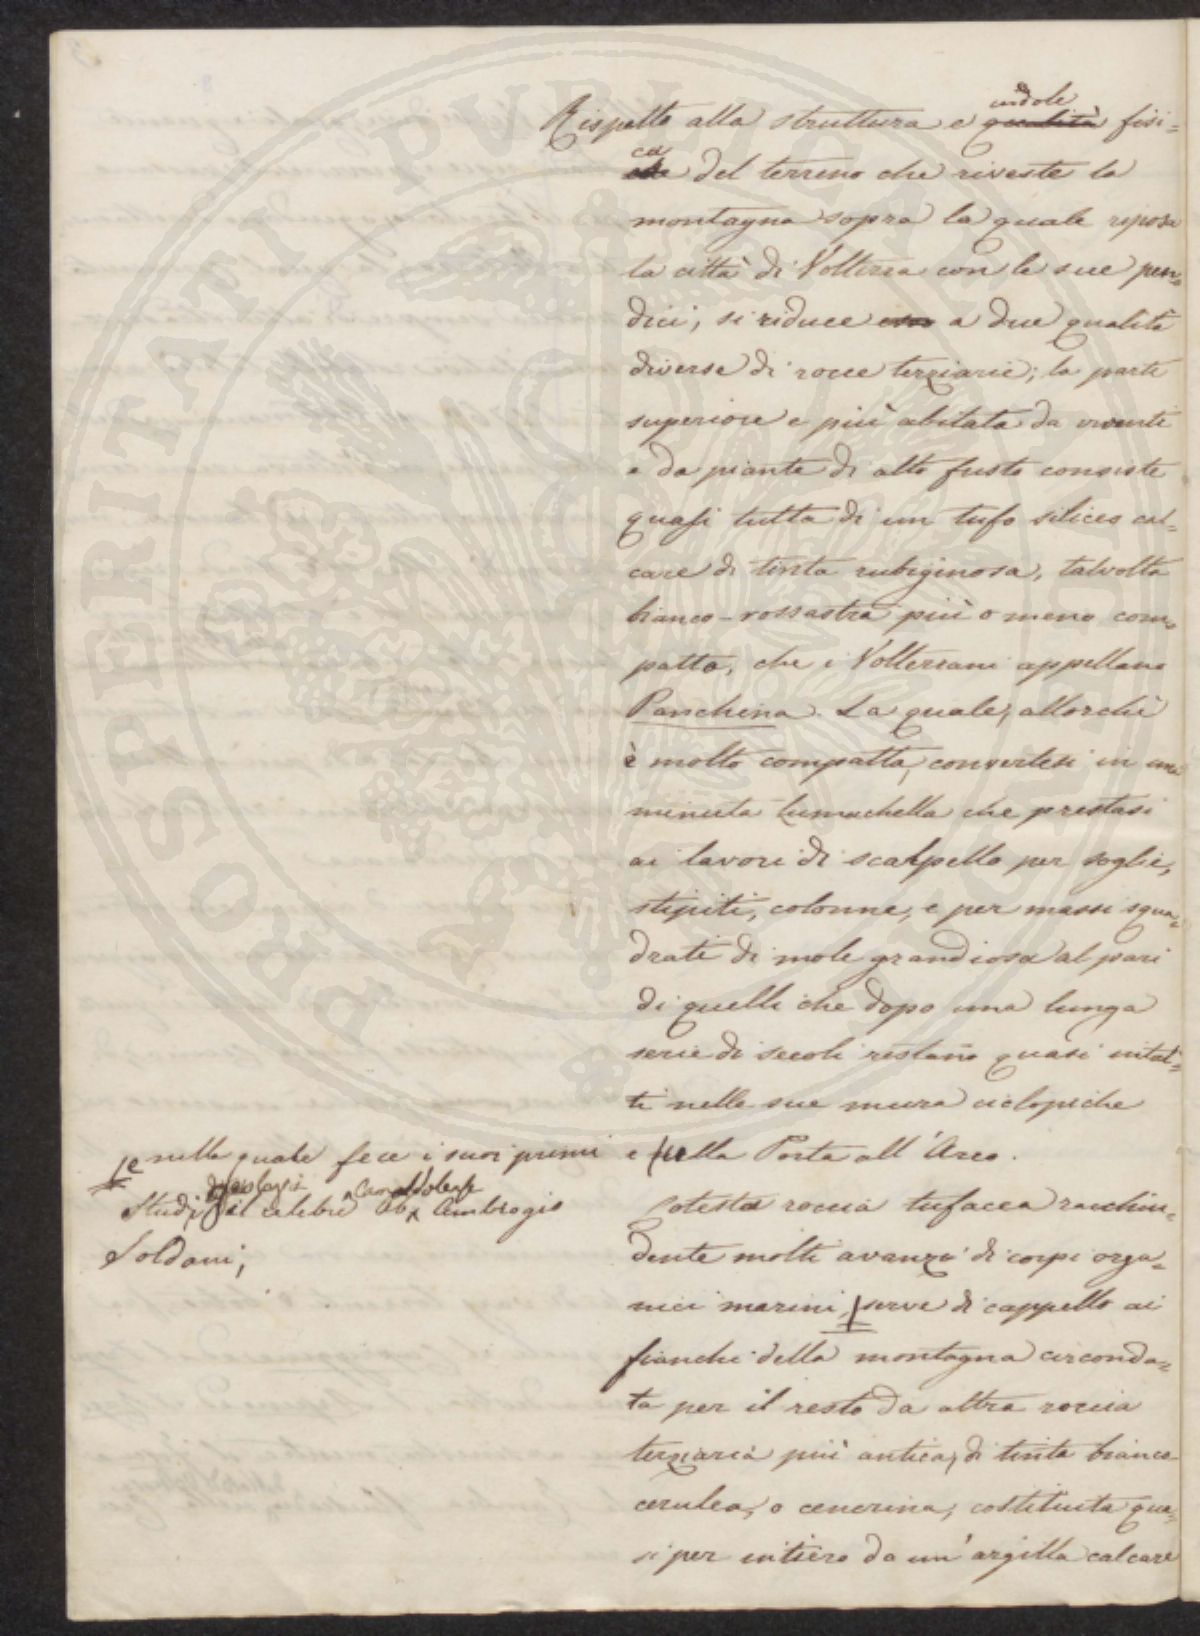 Rispetto alla struttura e qualità indole fisi=
ca del terreno che riveste la
montagna sopra la quale riposa
la città di Volterra con le sue pen=
dici, si riduce a due qualità
diverse di rocce terziarie; la parte
superiore e più abitata da viventi
e da piante di alto fusto consiste
quasi tutta di un tufo siliceo cal=
care di tinta rubiginosa, talvolta
bianco-rossastra più o meno com=
patto, che i Volterrani appellano
Panchina. La quale, allorchè
è molto compatta, convertesi in una
minuta lumachella che prestasi
ai lavori di scalpello per soglie,
stipiti, colonne, e per massi squa=
drati di mole grandiosa al pari
di quelli che dopo una lunga
serie di secoli restano quasi intat=
ti nelle sue mura ciclopiche
e nella Porta all'Arco.
Cotesta roccia tufacea racchiu=
dente molti avanzi di corpi orga=
nici marini, serve di cappello ai
fianchi della montagna circonda=
ta per il resto da altra roccia
terziaria più antica, di tinta bianco-
cerulea, o cenerina, costituita qua=
si per intiero da un'argilla calcare
e nella quale fece i suoi primi
Studj geologici il celebre Ab. Camaldolense Ambrogio
Soldani;
PROSPERITATI PVBLICAE